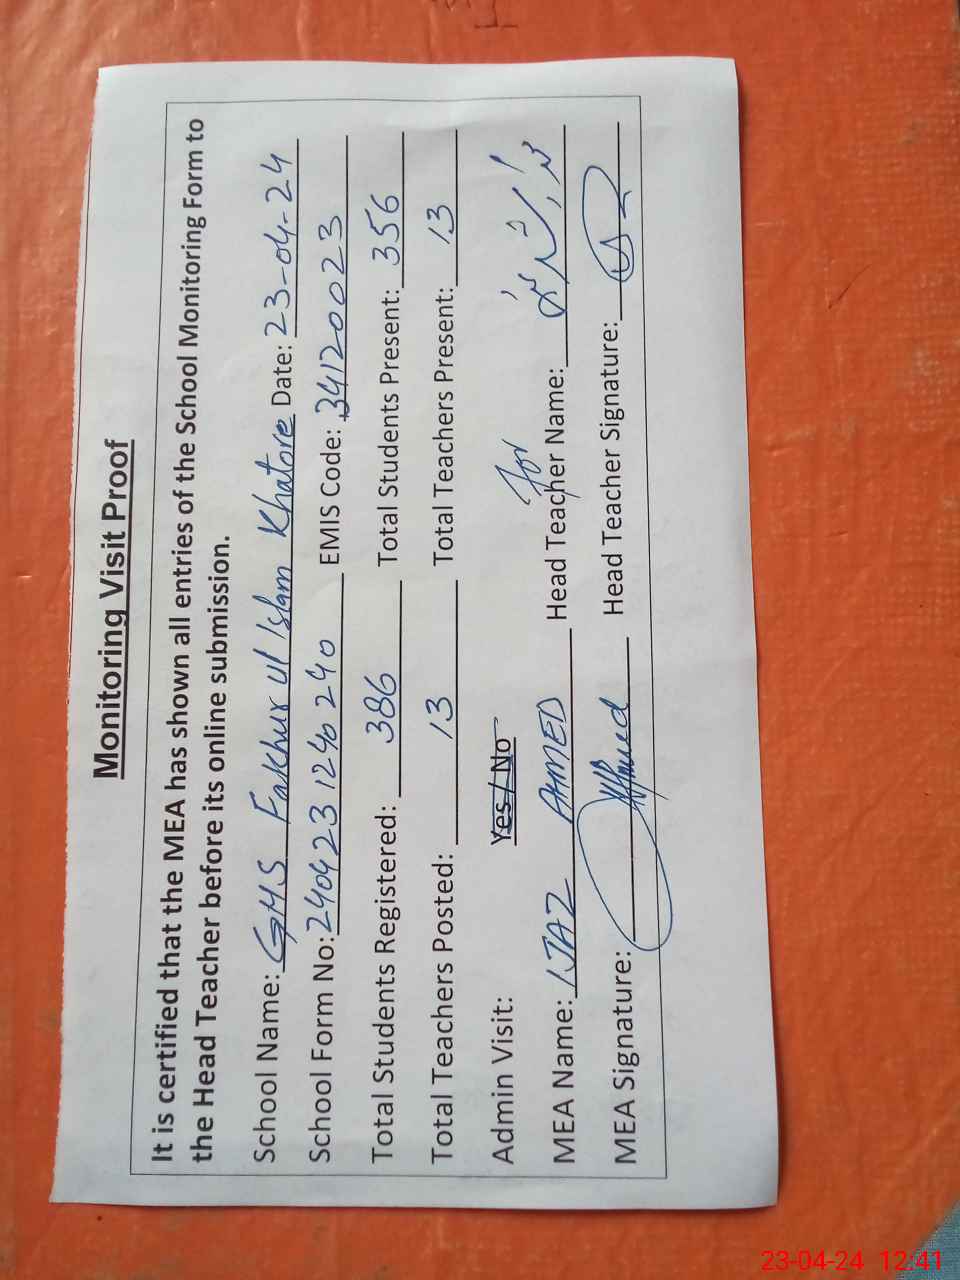 Monitoring Visit Proof
It is certified that the MEA has shown all entries of the School Monitoring Form to
the Head Teacher before its online submission.
School Name: GMS Fakhur ul Islam Khatore Date: 23-04-24
School Form No: 240423 1240240 EMIS Code: 34120023
Total Students Registered: 386 Total Students Present: 356
Total Teachers Posted: 13 Total Teachers Present: 13
Admin Visit: Yes / No For
MEA Name: IJAZ AHMED Head Teacher Name:
MEA Signature: Head Teacher Signature:
23-04-24 12:41